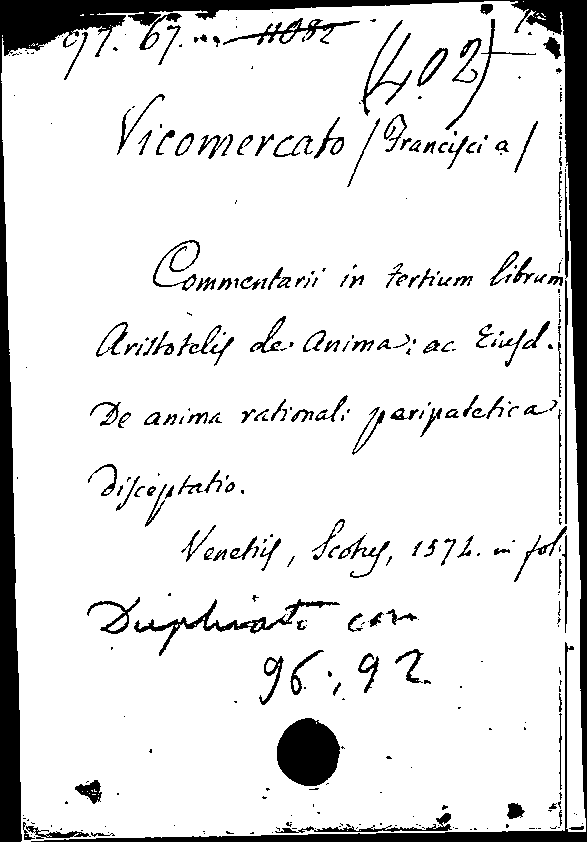 97. 67. 11082
(402)
Vicomercato / Francisci a /
Commentarii in tertium librum
Aristotelis de Anima: ac Eiusd.
De anima rationali peripatetica
disceptatio.
Venetiis, Scotus, 1574. in fol.
Duplicato con
96., 92